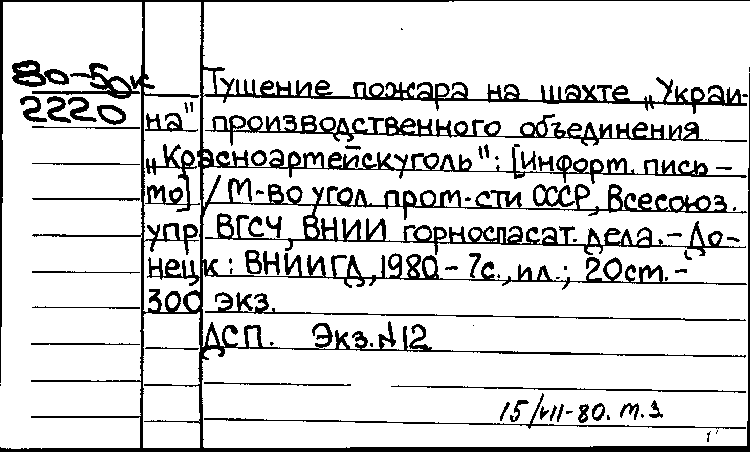 80-50к
2220
Тушение пожара на шахте „Украи-
на" производственного объединения
„Красноармейскуголь": [Информ. пись-
мо] / М-во угол. пром-сти СССР, Всесоюз.
упр. ВГСЧ, ВНИИ горноспасат. дела. - До-
нецк: ВНИИГД, 1980. - 7с., ил.; 20см. -
300 экз.
ДСП. Экз. №12
15/VII-80. т.з.